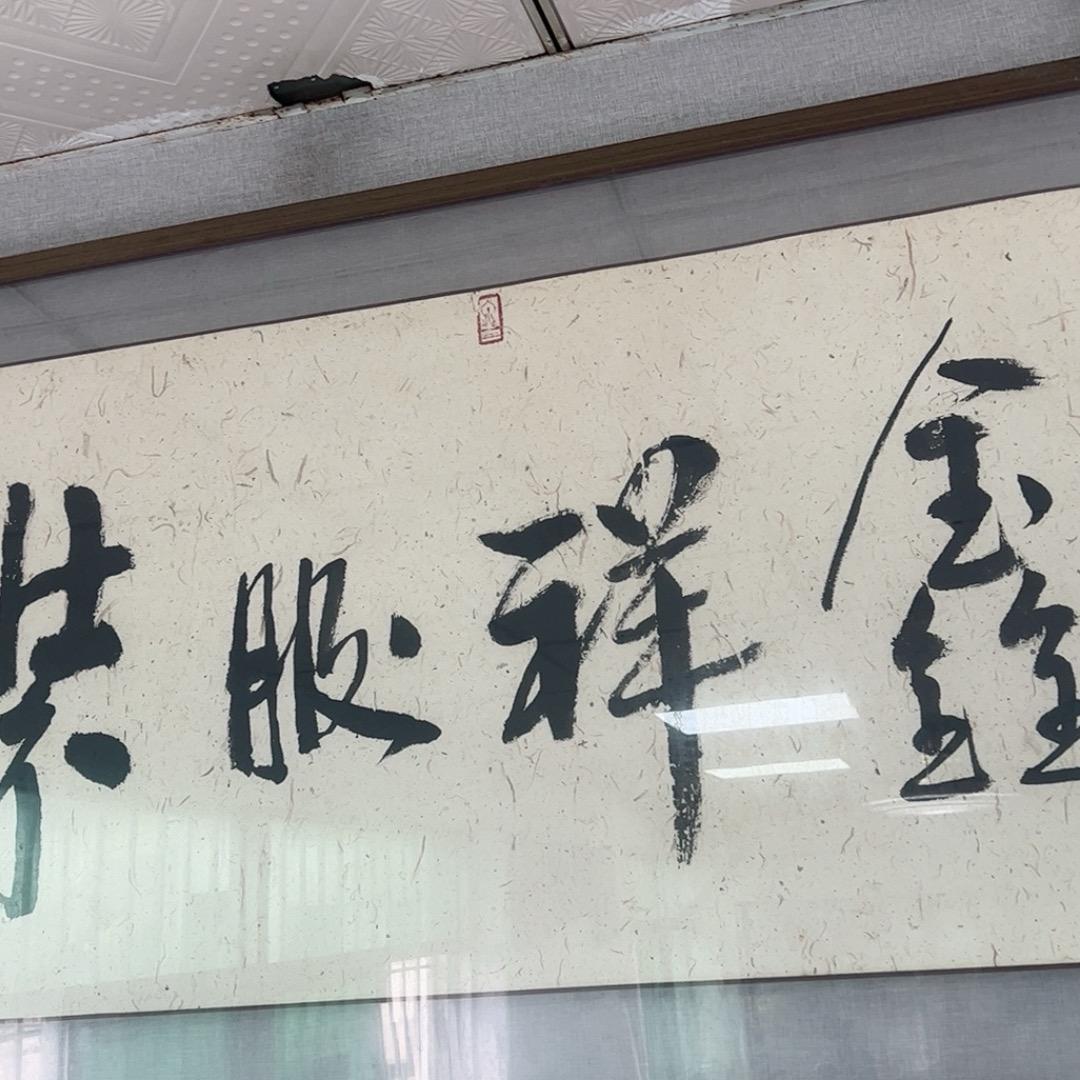 鑫祥服装